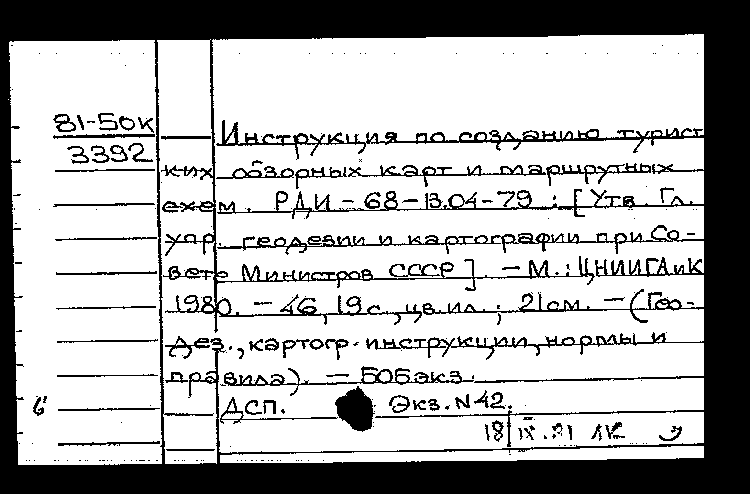 81-50к
3392
Инструкция по созданию турист
ких обзорных карт и маршрутных
схем. РДИ-68-13.04-79 : [Утв. Гл.
упр. геодезии и картографии при Со-
вете Министров СССР]. - М. : ЦНИИГАиК
1980. - 46, 19 с., цв.ил.; 21 см. - (Гео-
дез., картогр. инструкции, нормы и
правила). - 505 экз.
ДСП. Экз. N 42.
6
18 IX.81